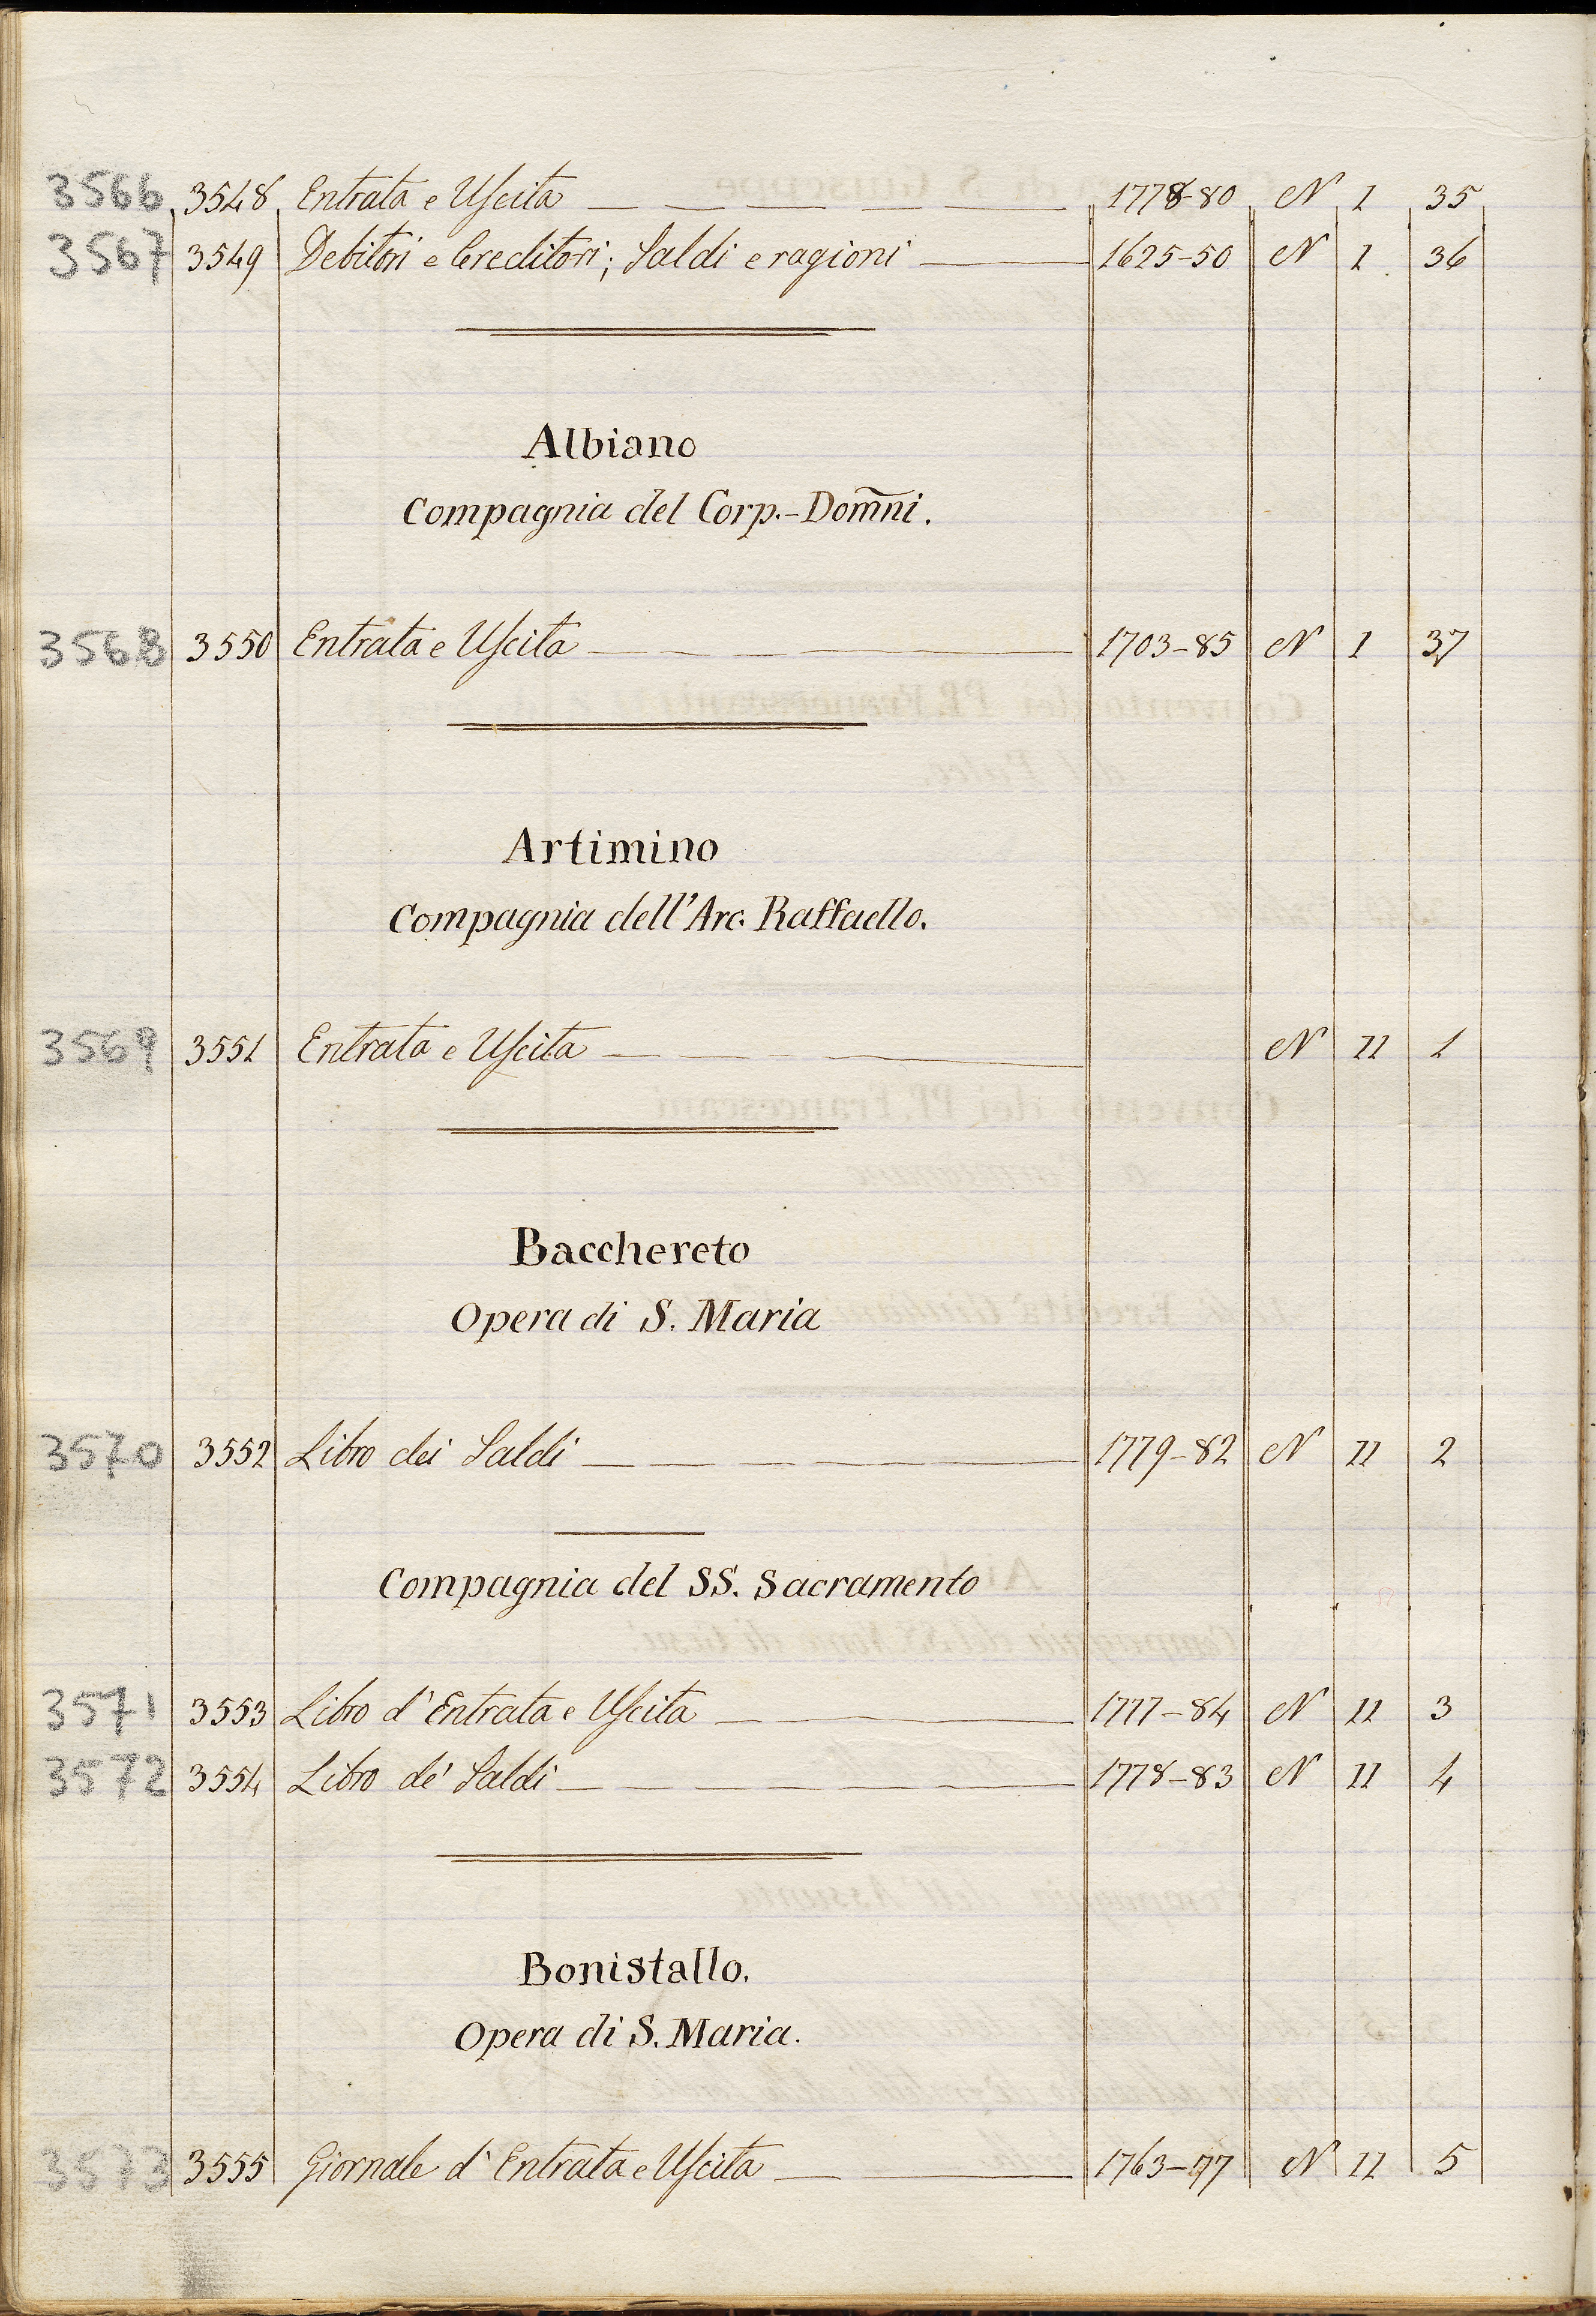 3566 3548 Entrata e Uscita 1778-80 N 1 35
3567 3549 Debitori e Creditori; Saldi e ragioni 1625-50 N 1 36
Albiano
Compagnia del Corp.-Dom̃ni.
3568 3550 Entrata e Uscita 1703-85 N 1 37
Artimino
Compagnia dell'Arc. Raffaello.
3569 3551 Entrata e Uscita N 11 1
Bacchereto
Opera di S. Maria
3570 3552 Libro dei Saldi 1779-82 N 11 2
Compagnia del SS. Sacramento
3571 3553 Libro d'Entrata e Uscita 1777-84 N 11 3
3572 3554 Libro de' Saldi 1778-83 N 11 4
Bonistallo.
Opera di S. Maria.
3573 3555 Giornale d'Entrata e Uscita 1763-77 N 11 5